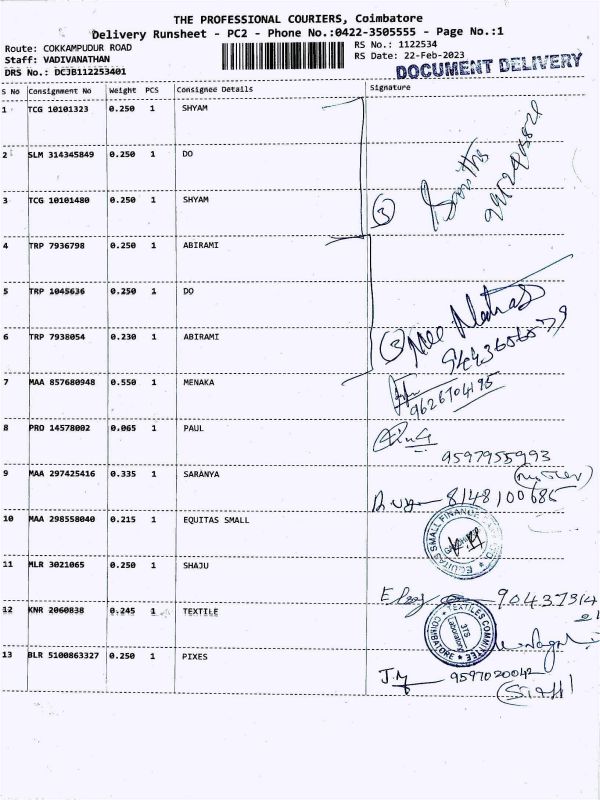 THE PROFESSIONAL COURIERS, Coimbatore
Delivery Runsheet - PC2 - Phone No.:0422-3505555 - Page No.:1
Route: COKKAMPUDUR ROAD
Staff: VADIVANATHAN
DRS No.: DCJB112253401
RS No.: 1122534
RS Date: 22-Feb-2023
DOCUMENT DELIVERY
S No Consignment No Weight PCS Consignee Details Signature
1 TCG 10101323 0.250 1 SHYAM
2 SLM 314345849 0.250 1 DO
3 TCG 10101480 0.250 1 SHYAM
3
4 TRP 7936798 0.250 1 ABIRAMI
5 TRP 1045636 0.250 1 DO
6 TRP 7938054 0.230 1 ABIRAMI
3
7 MAA 857680948 0.550 1 MENAKA
9626704195
8 PRO 14578002 0.065 1 PAUL
9597955993
9 MAA 297425416 0.335 1 SARANYA
8148100685
10 MAA 298558040 0.215 1 EQUITAS SMALL
EQUITAS SMALL FINANCE
11 MLR 3021065 0.250 1 SHAJU
12 KNR 2060838 0.245 1 TEXTILE
TEXTILES COMMITTEE
COIMBATORE
Laboratory
13 BLR 5100863327 0.250 1 PIXES
9597020042
(Staff)